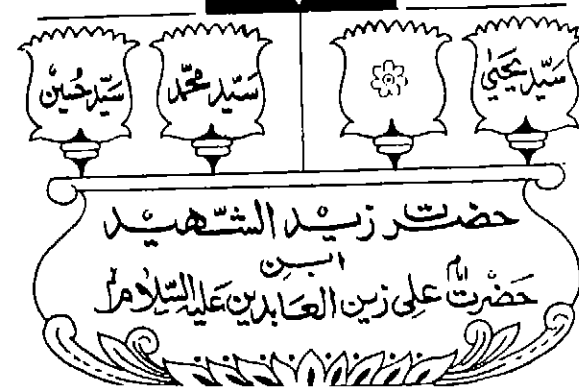 سیّد یحییٰ
سیّد محمّد
سیّد حسین
حضرت زید الشّھید
ابن
حضرت امام علی زین العابدین علیہ السّلام